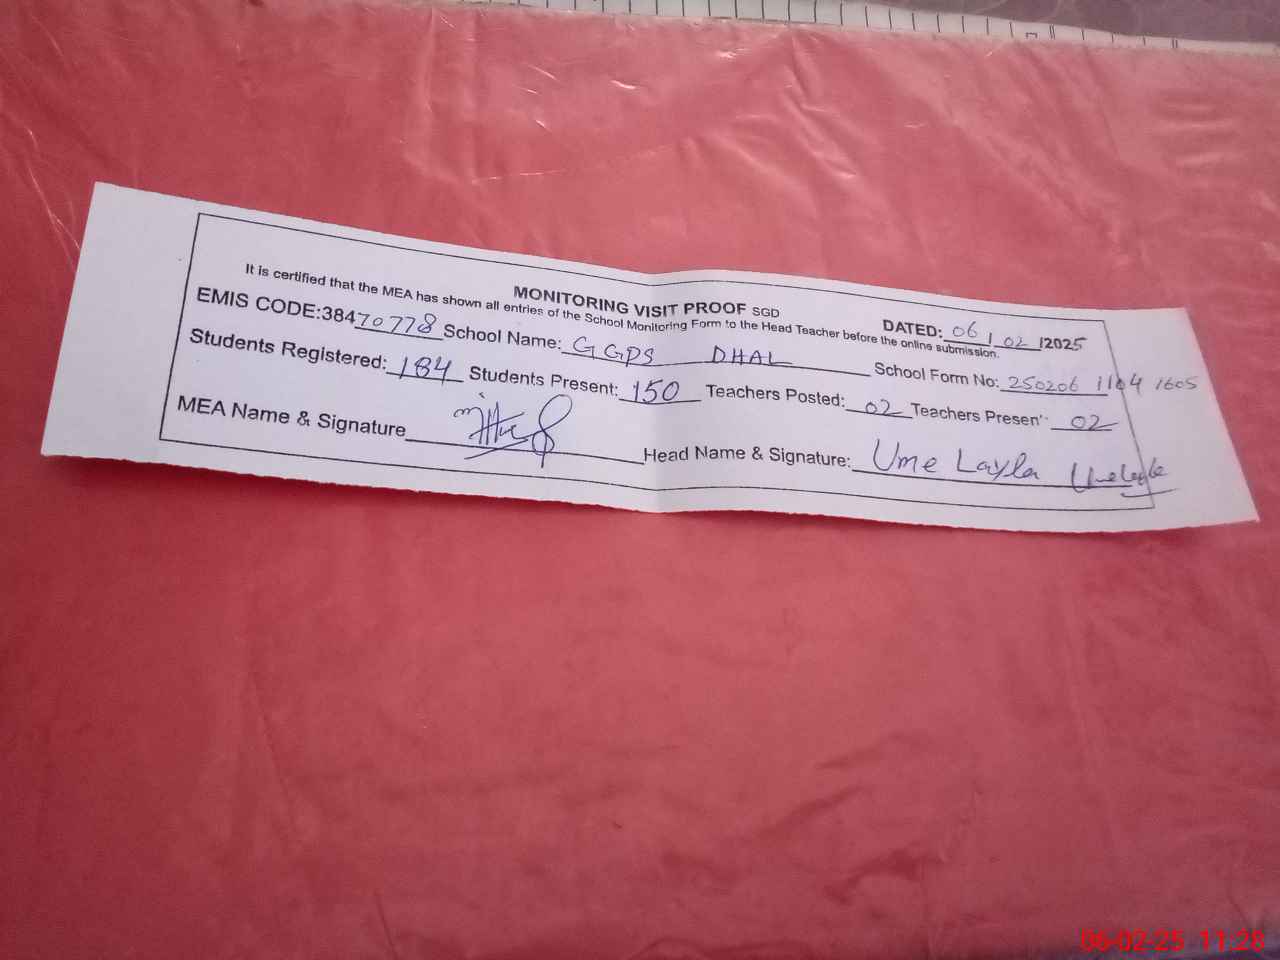 MONITORING VISIT PROOF SGD
DATED: 06/02/2025
It is certified that the MEA has shown all entries of the School Monitoring Form to the Head Teacher before the online submission.
EMIS CODE:38470778 School Name: GGPS DHAL School Form No: 250206 1104 1605
Students Registered: 184 Students Present: 150 Teachers Posted: 02 Teachers Present: 02
MEA Name & Signature
Head Name & Signature: Ume Layla
06-02-25 11:28